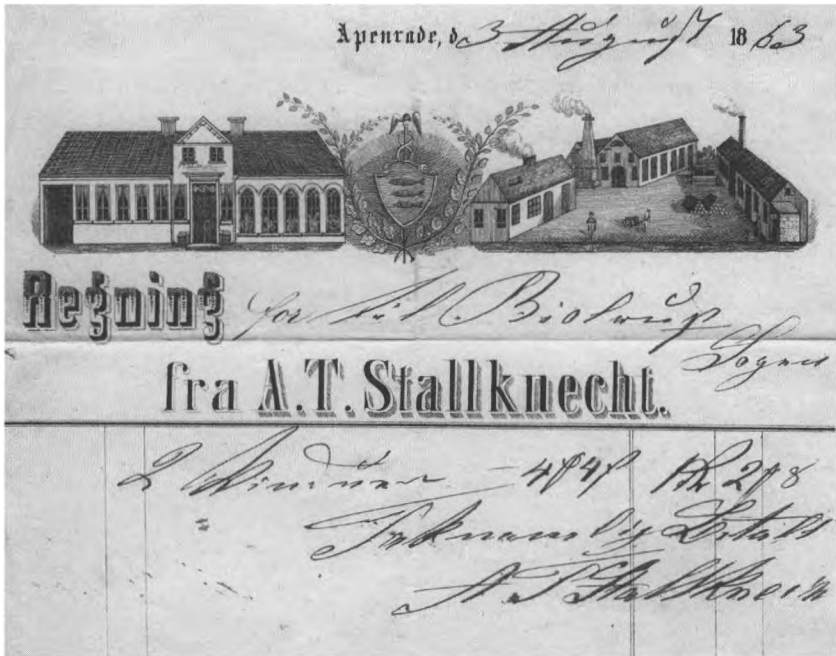 Apenrade, d. 3 August 1863
Regning for til Biolrup
Sogn
fra A. T. Stallknecht.
2 Vinduer 4 4 2 8
Betalt
A. T. Stallknecht